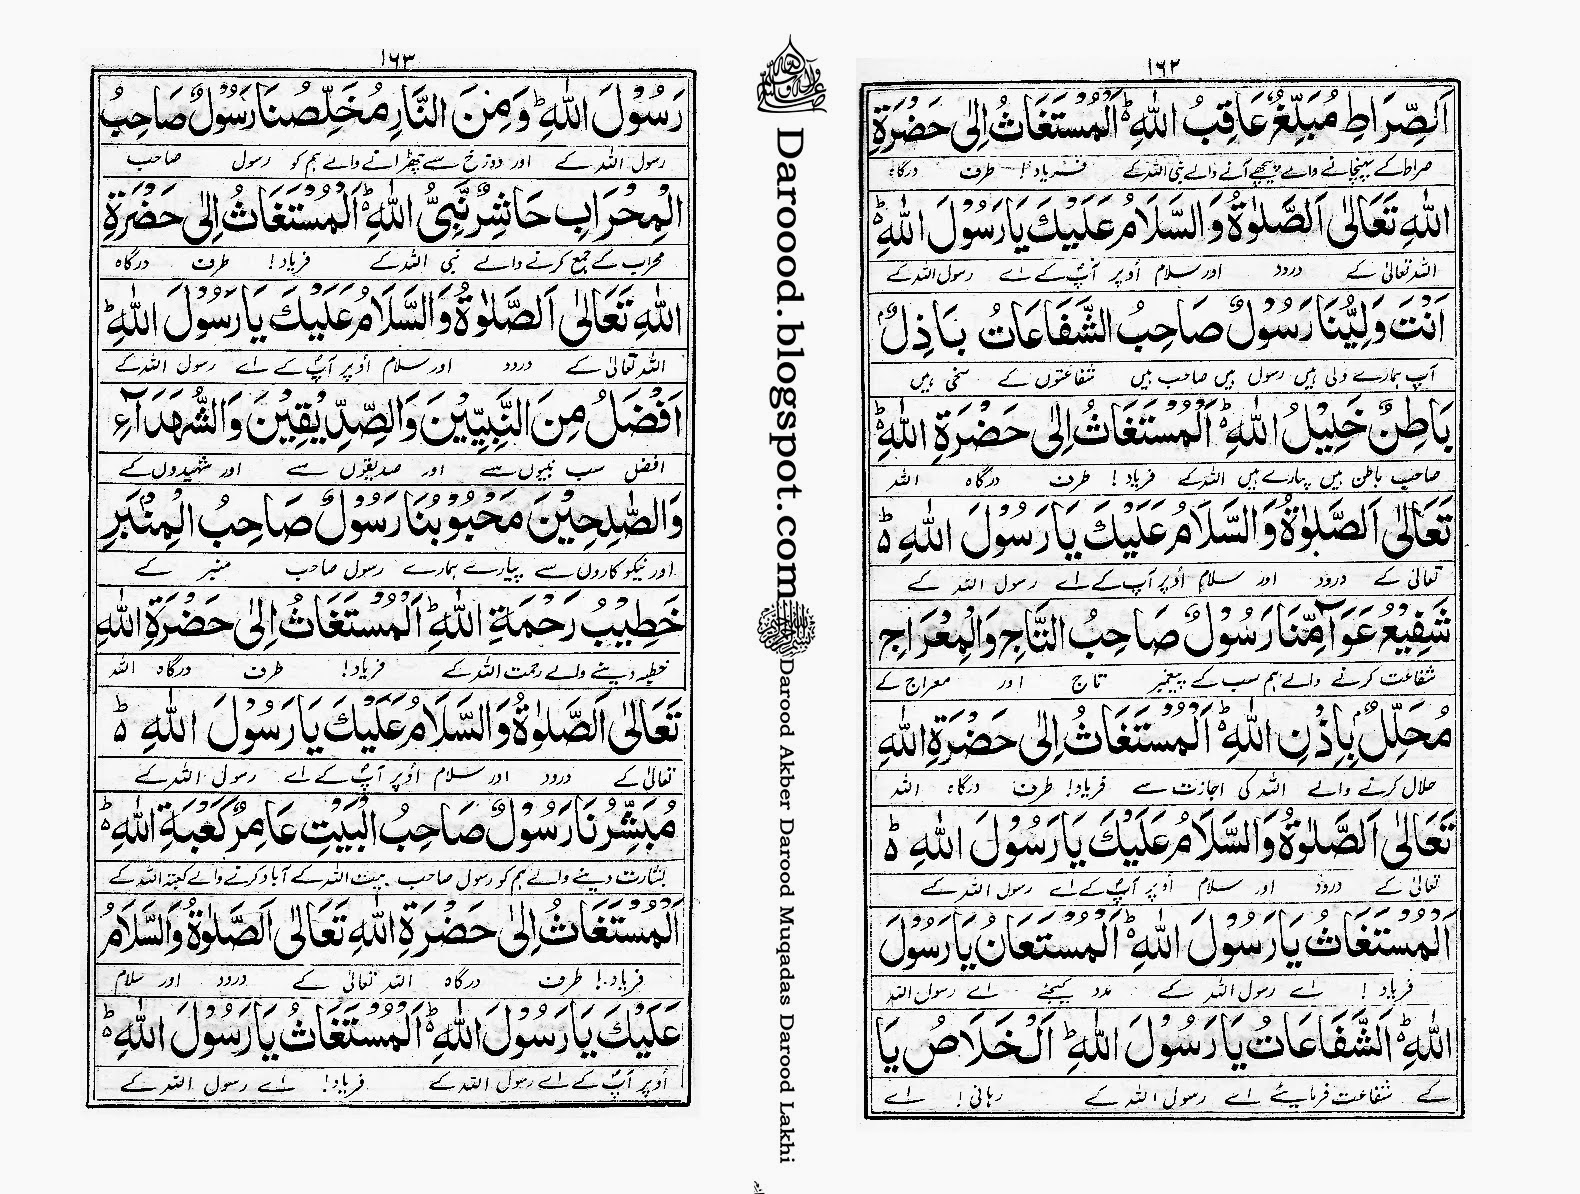 ١٦٢
اَلصِّرَاطِ مُبَلِّغٌ عَاقِبُ اللهِ ؕ اَلْمُسْتَغَاثُ اِلٰى حَضْرَةِ
صراط کے پہنچانے والے پیچھے آنے والے نبی اللہ کے فریاد! طرف درگاہ
اللهِ تَعَالٰى اَلصَّلٰوةُ وَالسَّلَامُ عَلَيْكَ يَا رَسُوْلَ اللهِ ؕ
اللہ تعالیٰ کے درود اور سلام اُوپر آپؐ کے اے رسول اللہ کے
اَنْتَ وَلِيُّنَا رَسُوْلٌ صَاحِبُ الشَّفَاعَاتُ بَاذِلٌ
آپ ہمارے ولی ہیں رسول ہیں صاحب ہیں شفاعتوں کے سخی ہیں
بَاطِنٌ خَلِيْلُ اللهِ ؕ اَلْمُسْتَغَاثُ اِلٰى حَضْرَةِ اللهِ ؕ
صاحب باطن ہیں پیارے ہیں اللہ کے فریاد! طرف درگاہ اللہ
تَعَالٰى اَلصَّلٰوةُ وَالسَّلَامُ عَلَيْكَ يَا رَسُوْلَ اللهِ ؕ
تعالیٰ کے درود اور سلام اُوپر آپ کے اے رسول اللہ کے
شَفِيْعُ عَوَآمِّنَا رَسُوْلٌ صَاحِبُ التَّاجِ وَالْمِعْرَاجِ
شفاعت کرنے والے ہم سب کے پیغمبر تاج اور معراج کے
مُحَلِّلٌ بِاِذْنِ اللهِ ؕ اَلْمُسْتَغَاثُ اِلٰى حَضْرَةِ اللهِ
حلال کرنے والے اللہ کی اجازت سے فریاد! طرف درگاہ اللہ
تَعَالٰى اَلصَّلٰوةُ وَالسَّلَامُ عَلَيْكَ يَا رَسُوْلَ اللهِ ؕ
تعالیٰ کے درود اور سلام اُوپر آپؐ کے اے رسول اللہ کے
اَلْمُسْتَغَاثُ يَا رَسُوْلَ اللهِ ؕ اَلْمُسْتَعَانُ يَا رَسُوْلَ
فریاد! اے رسول اللہ کے مدد کیجئے اے رسول اللہ
اللهِ ؕ اَلشَّفَاعَاتُ يَا رَسُوْلَ اللهِ ؕ اَلْخَلَاصُ يَا
کے شفاعت فرمایئے اے رسول اللہ کے رہائی! اے
Daroood.blogspot.com
Darood Akber Darood Muqadas Darood Lakhi
١٦٣
رَسُوْلَ اللهِ ؕ وَمِنَ النَّارِ مُخَلِّصُنَا رَسُوْلٌ صَاحِبُ
رسول اللہ کے اور دوزخ سے چھڑانے والے ہم کو رسول صاحب
الْمِحْرَابِ حَاشِرٌ نَّبِىُّ اللهِ ؕ اَلْمُسْتَغَاثُ اِلٰى حَضْرَةِ
محراب کے جمع کرنے والے نبی اللہ کے فریاد! طرف درگاہ
اللهِ تَعَالٰى اَلصَّلٰوةُ وَالسَّلَامُ عَلَيْكَ يَا رَسُوْلَ اللهِ ؕ
اللہ تعالیٰ کے درود اور سلام اُوپر آپؐ کے اے رسول اللہ کے
اَفْضَلُ مِنَ النَّبِيّٖيْنَ وَالصِّدِّيْقِيْنَ وَالشُّهَدَآءِ
افضل سب نبیوں سے اور صدیقوں سے اور شہیدوں کے
وَالصّٰلِحِيْنَ مَحْبُوْبُنَا رَسُوْلٌ صَاحِبُ الْمِنْبَرِ
اور نیکوکاروں سے پیارے ہمارے رسول صاحب منبر کے
خَطِيْبُ رَحْمَةِ اللهِ ؕ اَلْمُسْتَغَاثُ اِلٰى حَضْرَةِ اللهِ
خطبہ دینے والے رحمت اللہ کے فریاد! طرف درگاہ اللہ
تَعَالٰى اَلصَّلٰوةُ وَالسَّلَامُ عَلَيْكَ يَا رَسُوْلَ اللهِ ؕ
تعالیٰ کے درود اور سلام اُوپر آپؐ کے اے رسول اللہ کے
مُبَشِّرُنَا رَسُوْلٌ صَاحِبُ الْبَيْتِ عَامِرُ كَعْبَةِ اللهِ ؕ
بشارت دینے والے ہم کو رسول صاحب بیت اللہ کے آباد کرنے والے کعبۃ اللہ کے
اَلْمُسْتَغَاثُ اِلٰى حَضْرَةِ اللهِ تَعَالٰى اَلصَّلٰوةُ وَالسَّلَامُ
فریاد! طرف درگاہ اللہ تعالیٰ کے درود اور سلام
عَلَيْكَ يَا رَسُوْلَ اللهِ ؕ اَلْمُسْتَغَاثُ يَا رَسُوْلَ اللهِ ؕ
اُوپر آپؐ کے اے رسول اللہ کے فریاد! اے رسول اللہ کے